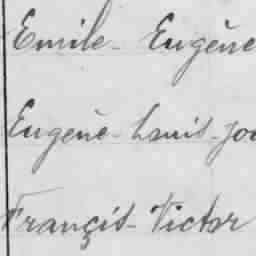 Emile - Eugène
Eugène - Louis - Jo
Françis - Victor